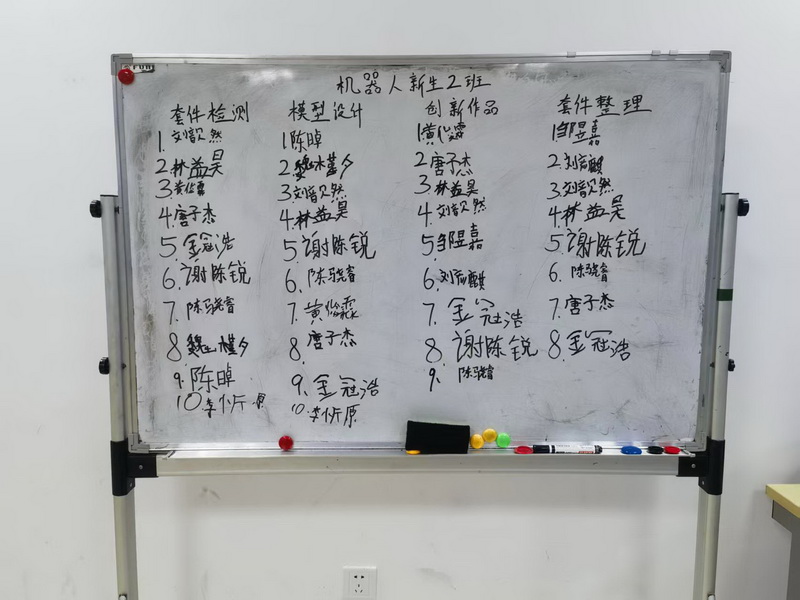 机器人新生2班
套件检测
1. 刘歆然
2 林益昊
3
4. 唐子杰
5 金冠浩
6. 谢陈锐
7. 陈骁睿
8
9. 陈晫
10 李忻原
模型设计
1 陈晫
2.
3 刘歆然
4. 林益昊
5 谢陈锐
6. 陈骁睿
7. 黄俊霖
8. 唐子杰
9. 金冠浩
10. 李忻原
创新作品
1 黄俊霖
2 唐子杰
3 林益昊
4 刘歆然
5 邹昱嘉
6. 刘
7. 金冠浩
8 谢陈锐
9. 陈骁睿
套件整理
1 邹昱嘉
2. 刘
3 刘歆然
4 林益昊
5 谢陈锐
6. 陈骁睿
7. 唐子杰
8. 金冠浩